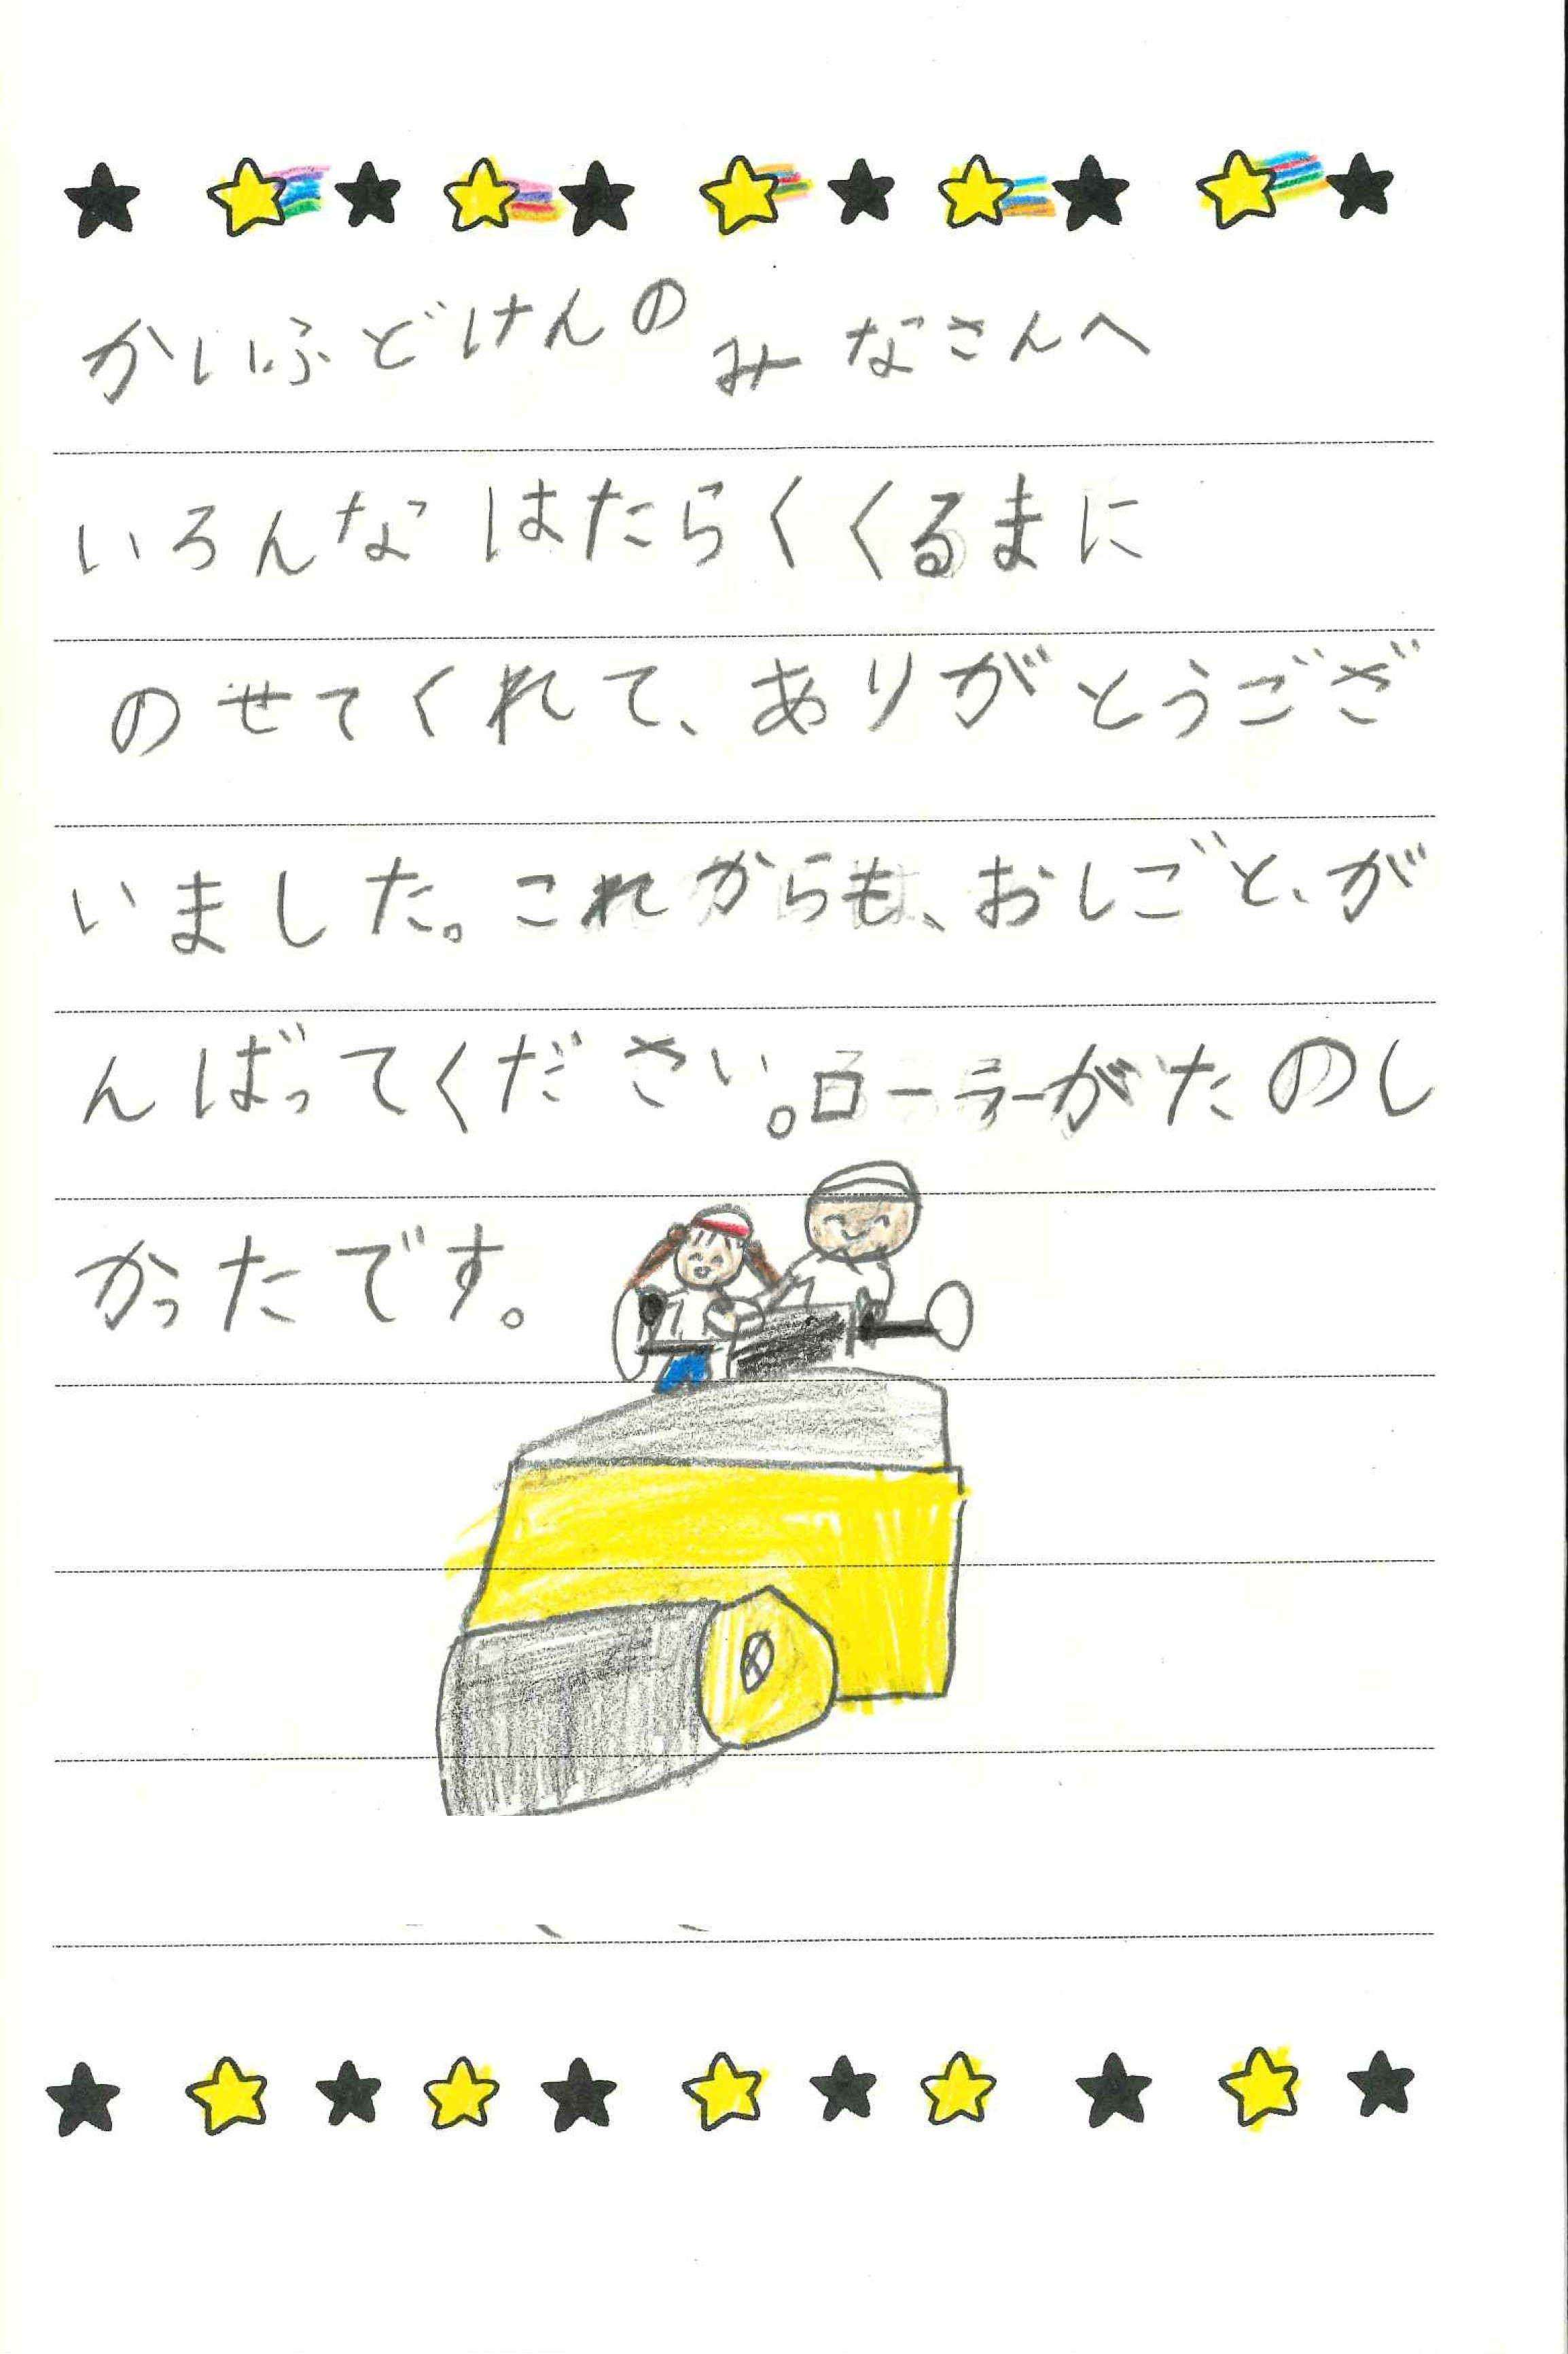 かいふどけんのみなさんへ
いろんなはたらくくるまに
のせてくれて、ありがとうござ
いました。これからも、おしごと、が
んばってください。ローラーがたのし
かったです。